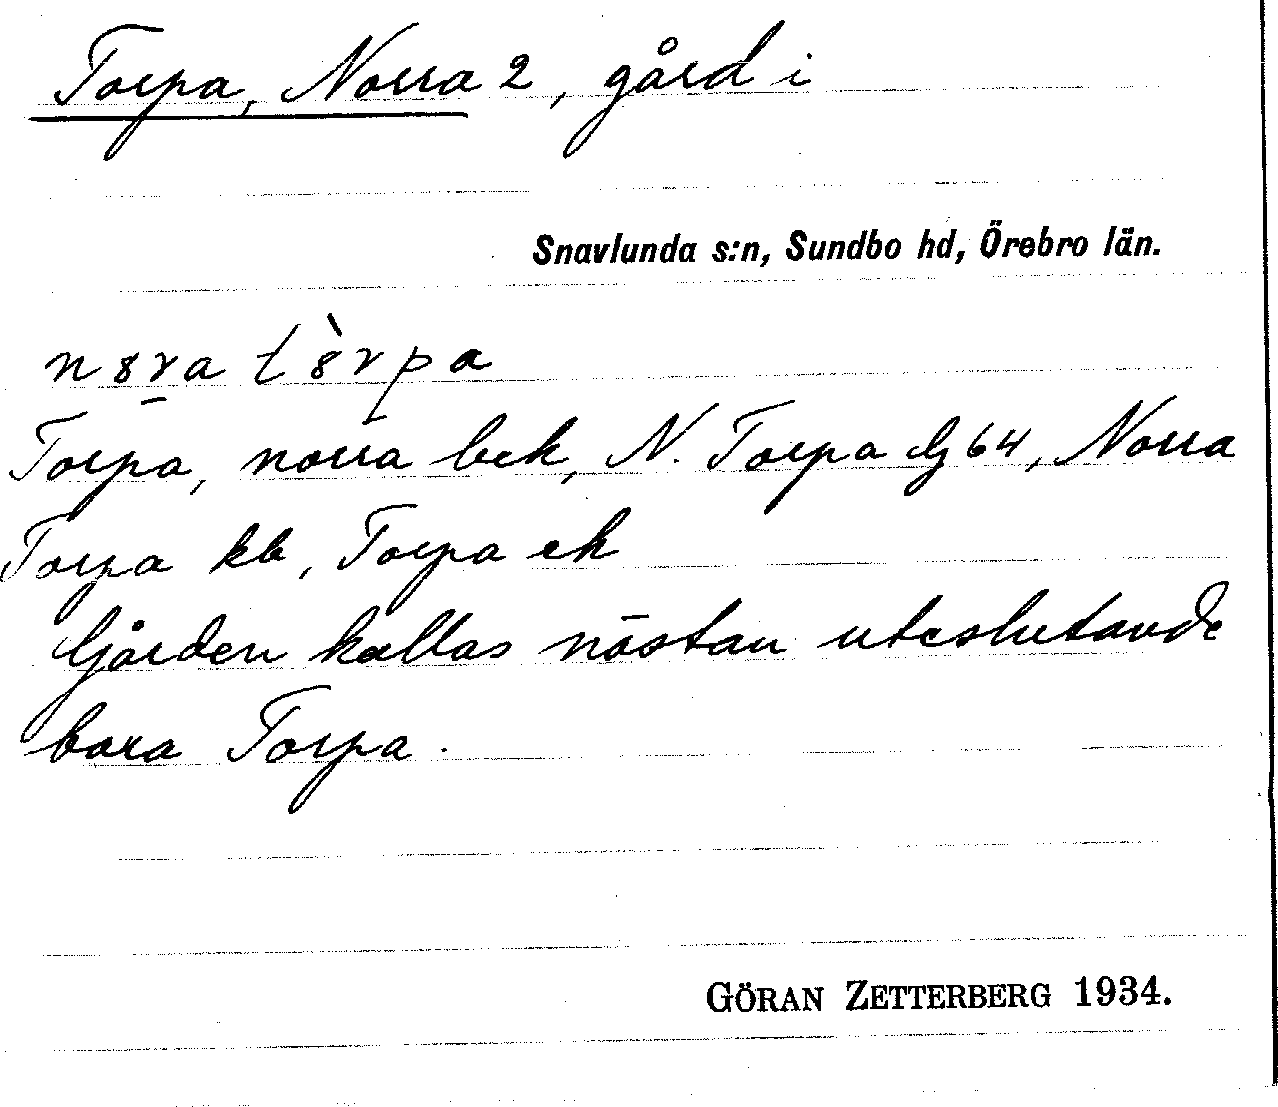 Torpa, Norra 2, gård i
Snavlunda s:n, Sundbo hd, Örebro län.
n8ra t8̀rpa
Torpa, norra bek, N. Torpa Gj 64, Norra
Torpa kb, Torpa ek
Gården kallas nästan uteslutande
bara Torpa.
GÖRAN ZETTERBERG 1934.